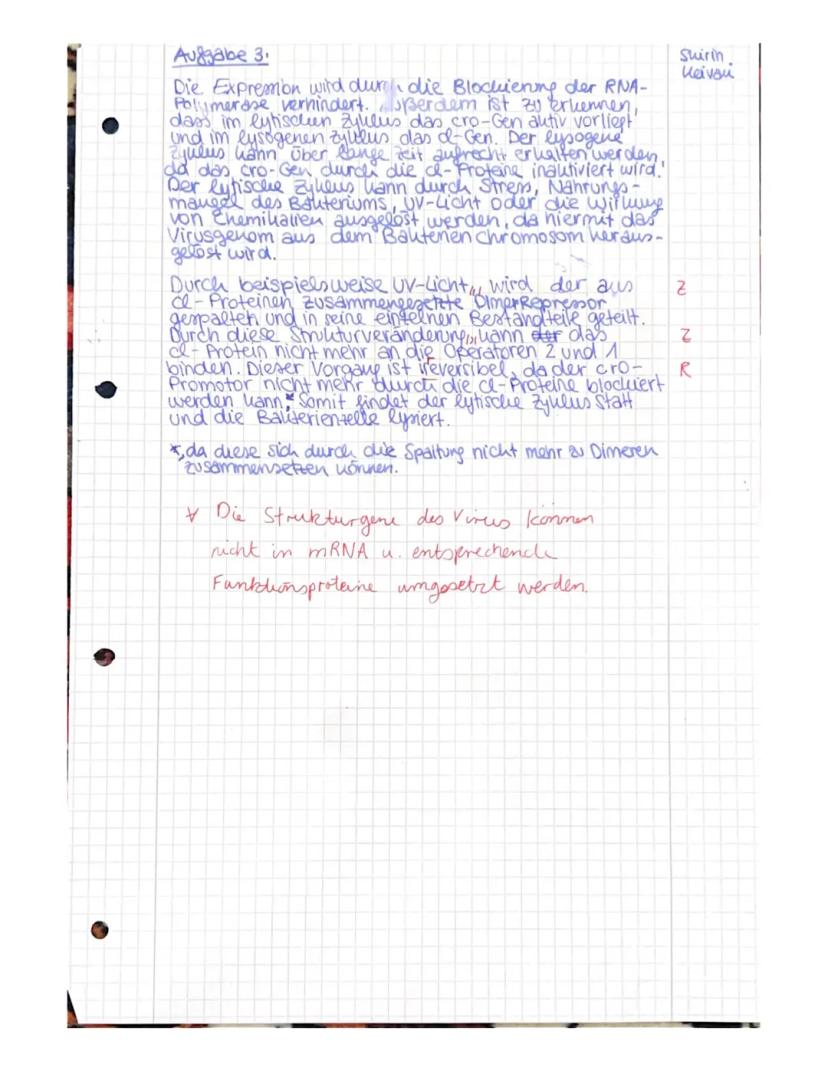 Aufgabe 3:
Shirin
Keivani
Die Expression wird durch die Blockierung der RNA-
Polymerase verhindert. Außerdem ist zu erkennen,
dass im lytischen Zyklus das cro-Gen aktiv vorliegt
und im lysogenen Zyklus das cl-Gen. Der lysogene
Zyklus kann über lange Zeit aufrecht erhalten werden,
da das cro-Gen durch die cl-Proteine inaktiviert wird.
Der lytische Zyklus kann durch Stress, Nahrungs-
mangel des Bakteriums, UV-Licht oder die Wirkung
von Chemikalien ausgelöst werden, da hiermit das
Virusgenom aus dem Bakterienchromosom heraus-
gelöst wird.
Durch beispielsweise UV-Licht, wird der aus
Z
cl-Proteinen zusammengesetzte Dimer Repressor
gespalten und in seine einzelnen Bestandteile geteilt.
Durch diese Strukturveränderung, kann der das
Z
cl-Protein nicht mehr an die Operatoren 2 und 1
binden. Dieser Vorgang ist ireversibel, da der cro-
R
Promotor nicht mehr durch die cl-Proteine blockiert
werden kann*. Somit findet der lytische Zyklus statt
und die Bakterienzelle lysiert.
*, da diese sich durch die Spaltung nicht mehr zu Dimeren
zusammensetzen können.
Die Strukturgene des Virus können
nicht in mRNA u. entsprechende
Funktionsproteine umgesetzt werden.